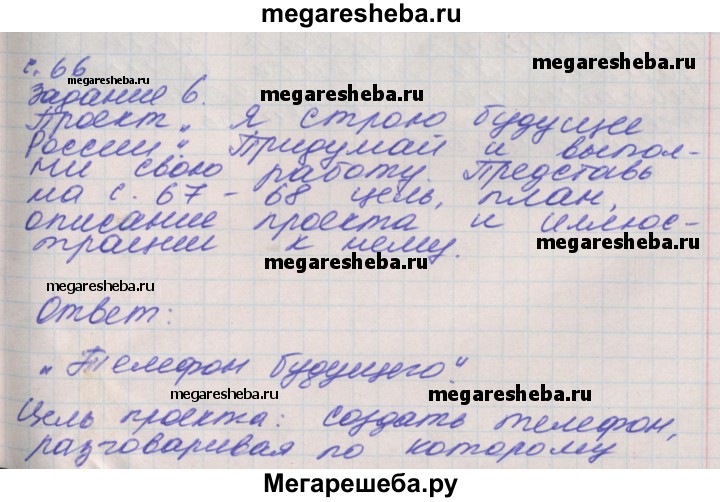 megaresheba.ru
с. 66
megaresheba.ru
Задание 6.
megaresheba.ru
Проект „ Я строю будущее
России“. Придумай и выпол-
megaresheba.ru
ни свою работу. Представь
на с. 67 - 68 цель, план,
описание проекта и иллюс-
megaresheba.ru
трации к нему.
megaresheba.ru
megaresheba.ru
Ответ:
„ Телефон будущего“.
megaresheba.ru
megaresheba.ru
Цель проекта: создать телефон,
разговаривая по которому
Мегарешеба.ру